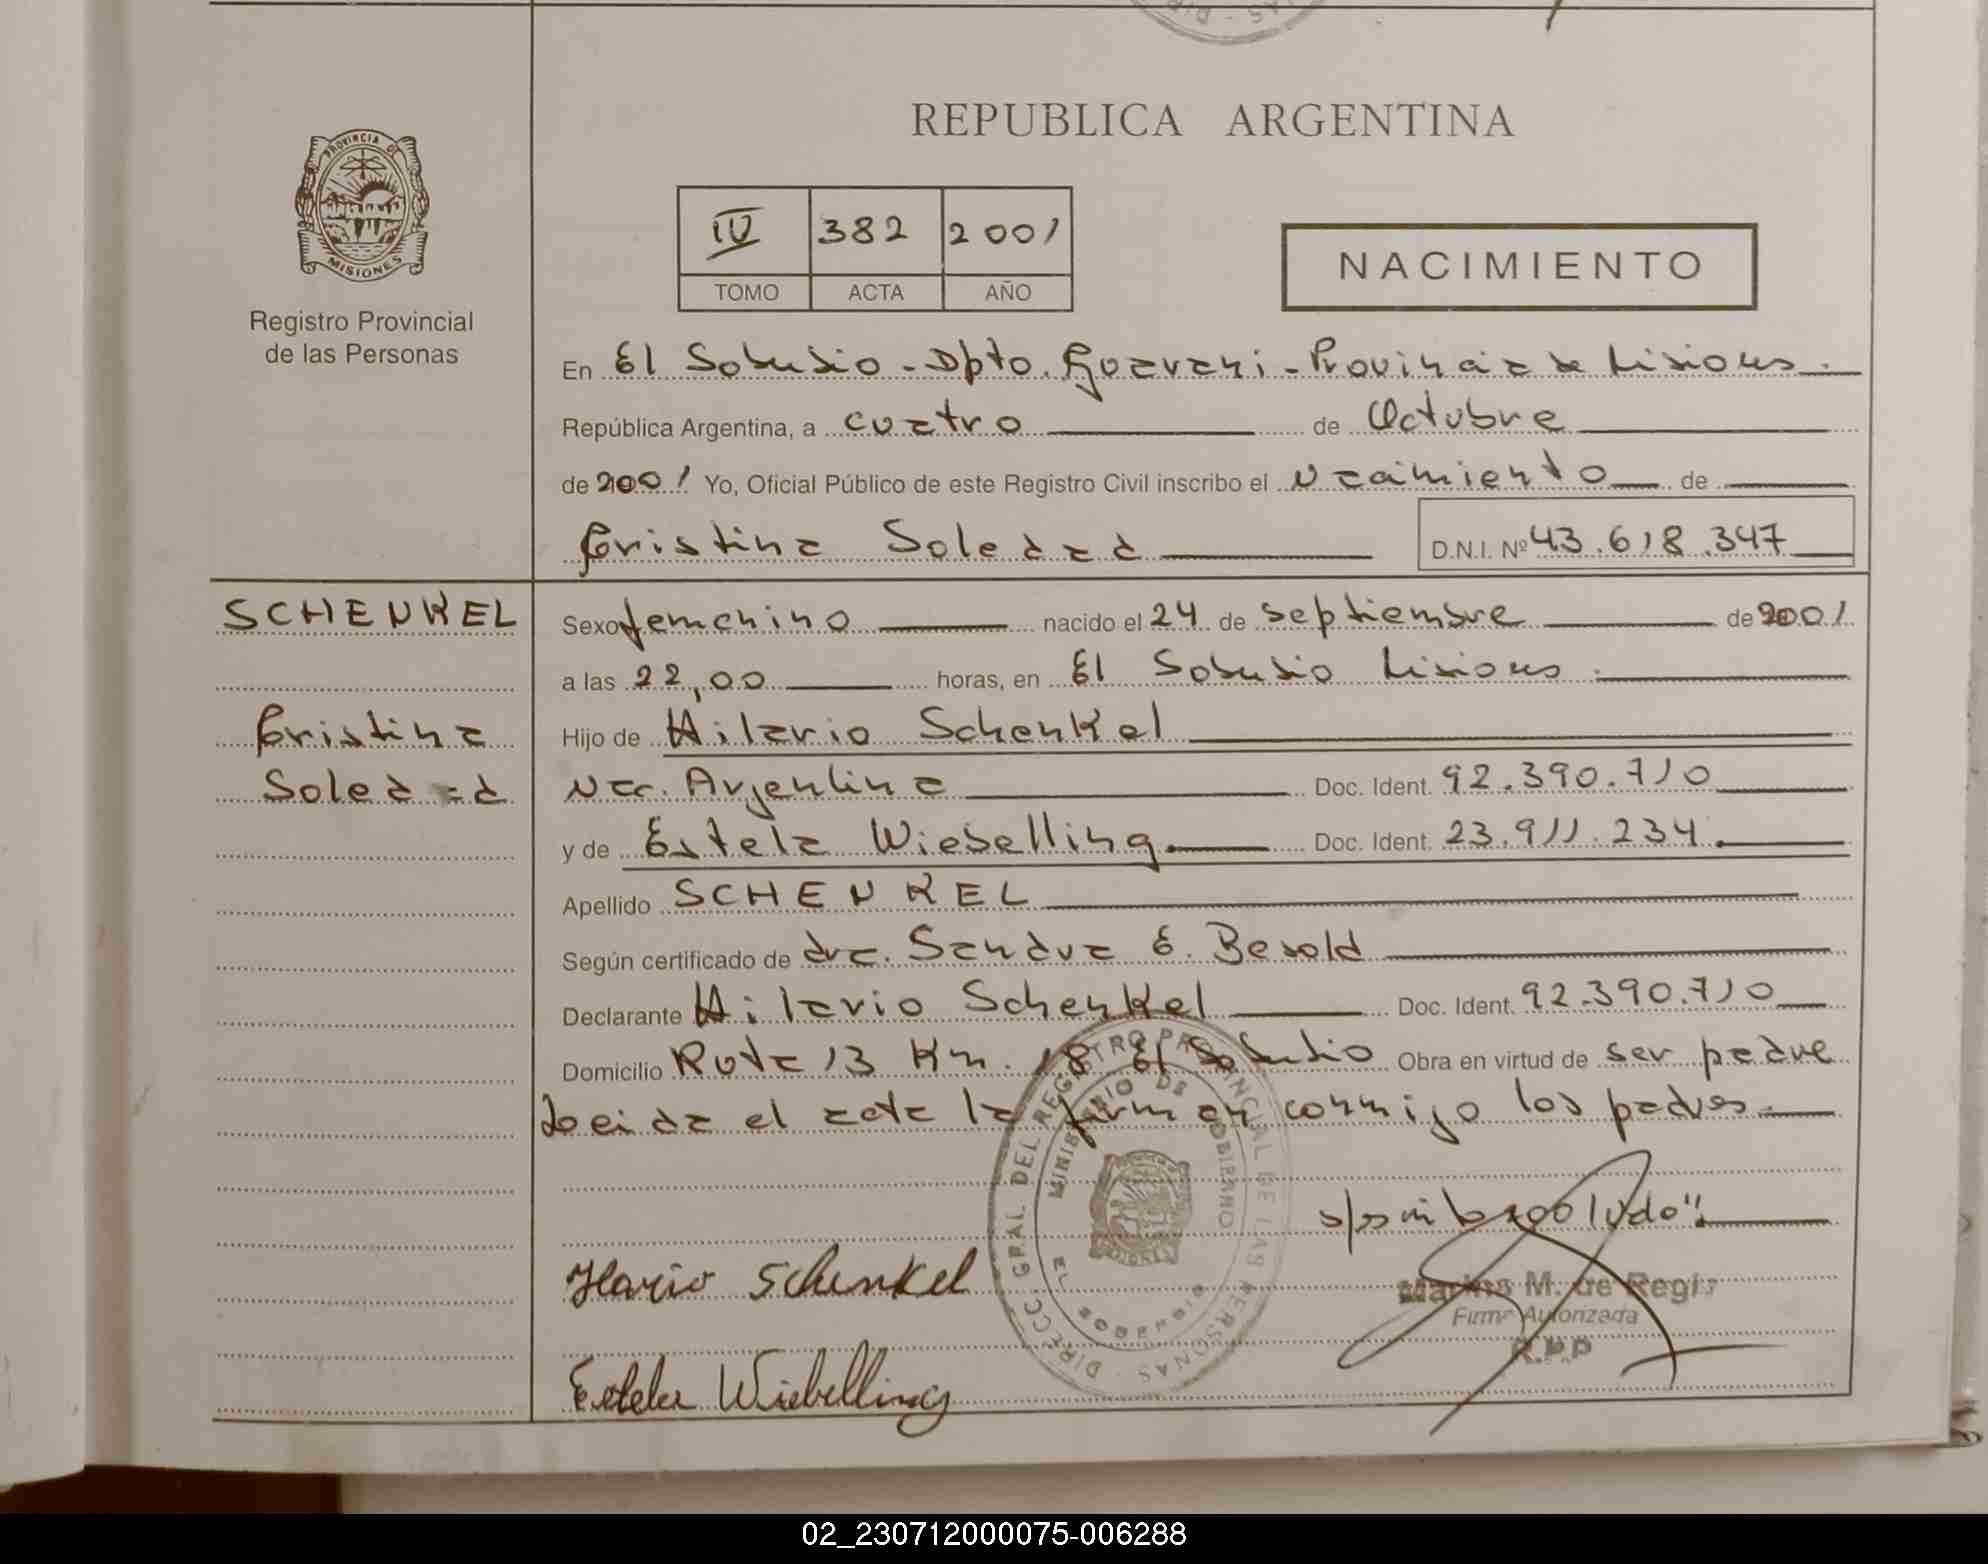 REPUBLICA ARGENTINA
PROVINCIA DE
MISIONES
Registro Provincial
de las Personas
IV 382 2001
TOMO ACTA AÑO
NACIMIENTO
En El Soberbio - Dpto. Guarani - Provincia de Misiones.
República Argentina, a cuatro de Octubre
de 2001 Yo, Oficial Público de este Registro Civil inscribo el Nacimiento de
Cristina Soledad D.N.I. Nº 43.618.347
SCHENKEL
Cristina
Soledad
Sexo femenino nacido el 24 de septiembre de 2001
a las 22,00 horas, en El Soberbio Misiones.
Hijo de Hilario Schenkel
Nac. Argentina Doc. Ident. 92.390.710
y de Estela Wiebelling. Doc. Ident. 23.911.234.
Apellido SCHENKEL
Según certificado de dra. Sandra E. Besold
Declarante Hilario Schenkel Doc. Ident. 92.390.710
Domicilio Ruta 13 Km. 18 El Soberbio Obra en virtud de ser padre
Leida el acta la firman conmigo los padres.
Ilario Schenkel
Estela Wiebelling
DIRECC. GRAL. DEL REGISTRO PROVINCIAL DE LAS PERSONAS
MINISTERIO DE GOBIERNO
EL SOBERBIO
M. de Regis
Firma Autorizada
R.P.P
02_230712000075-006288